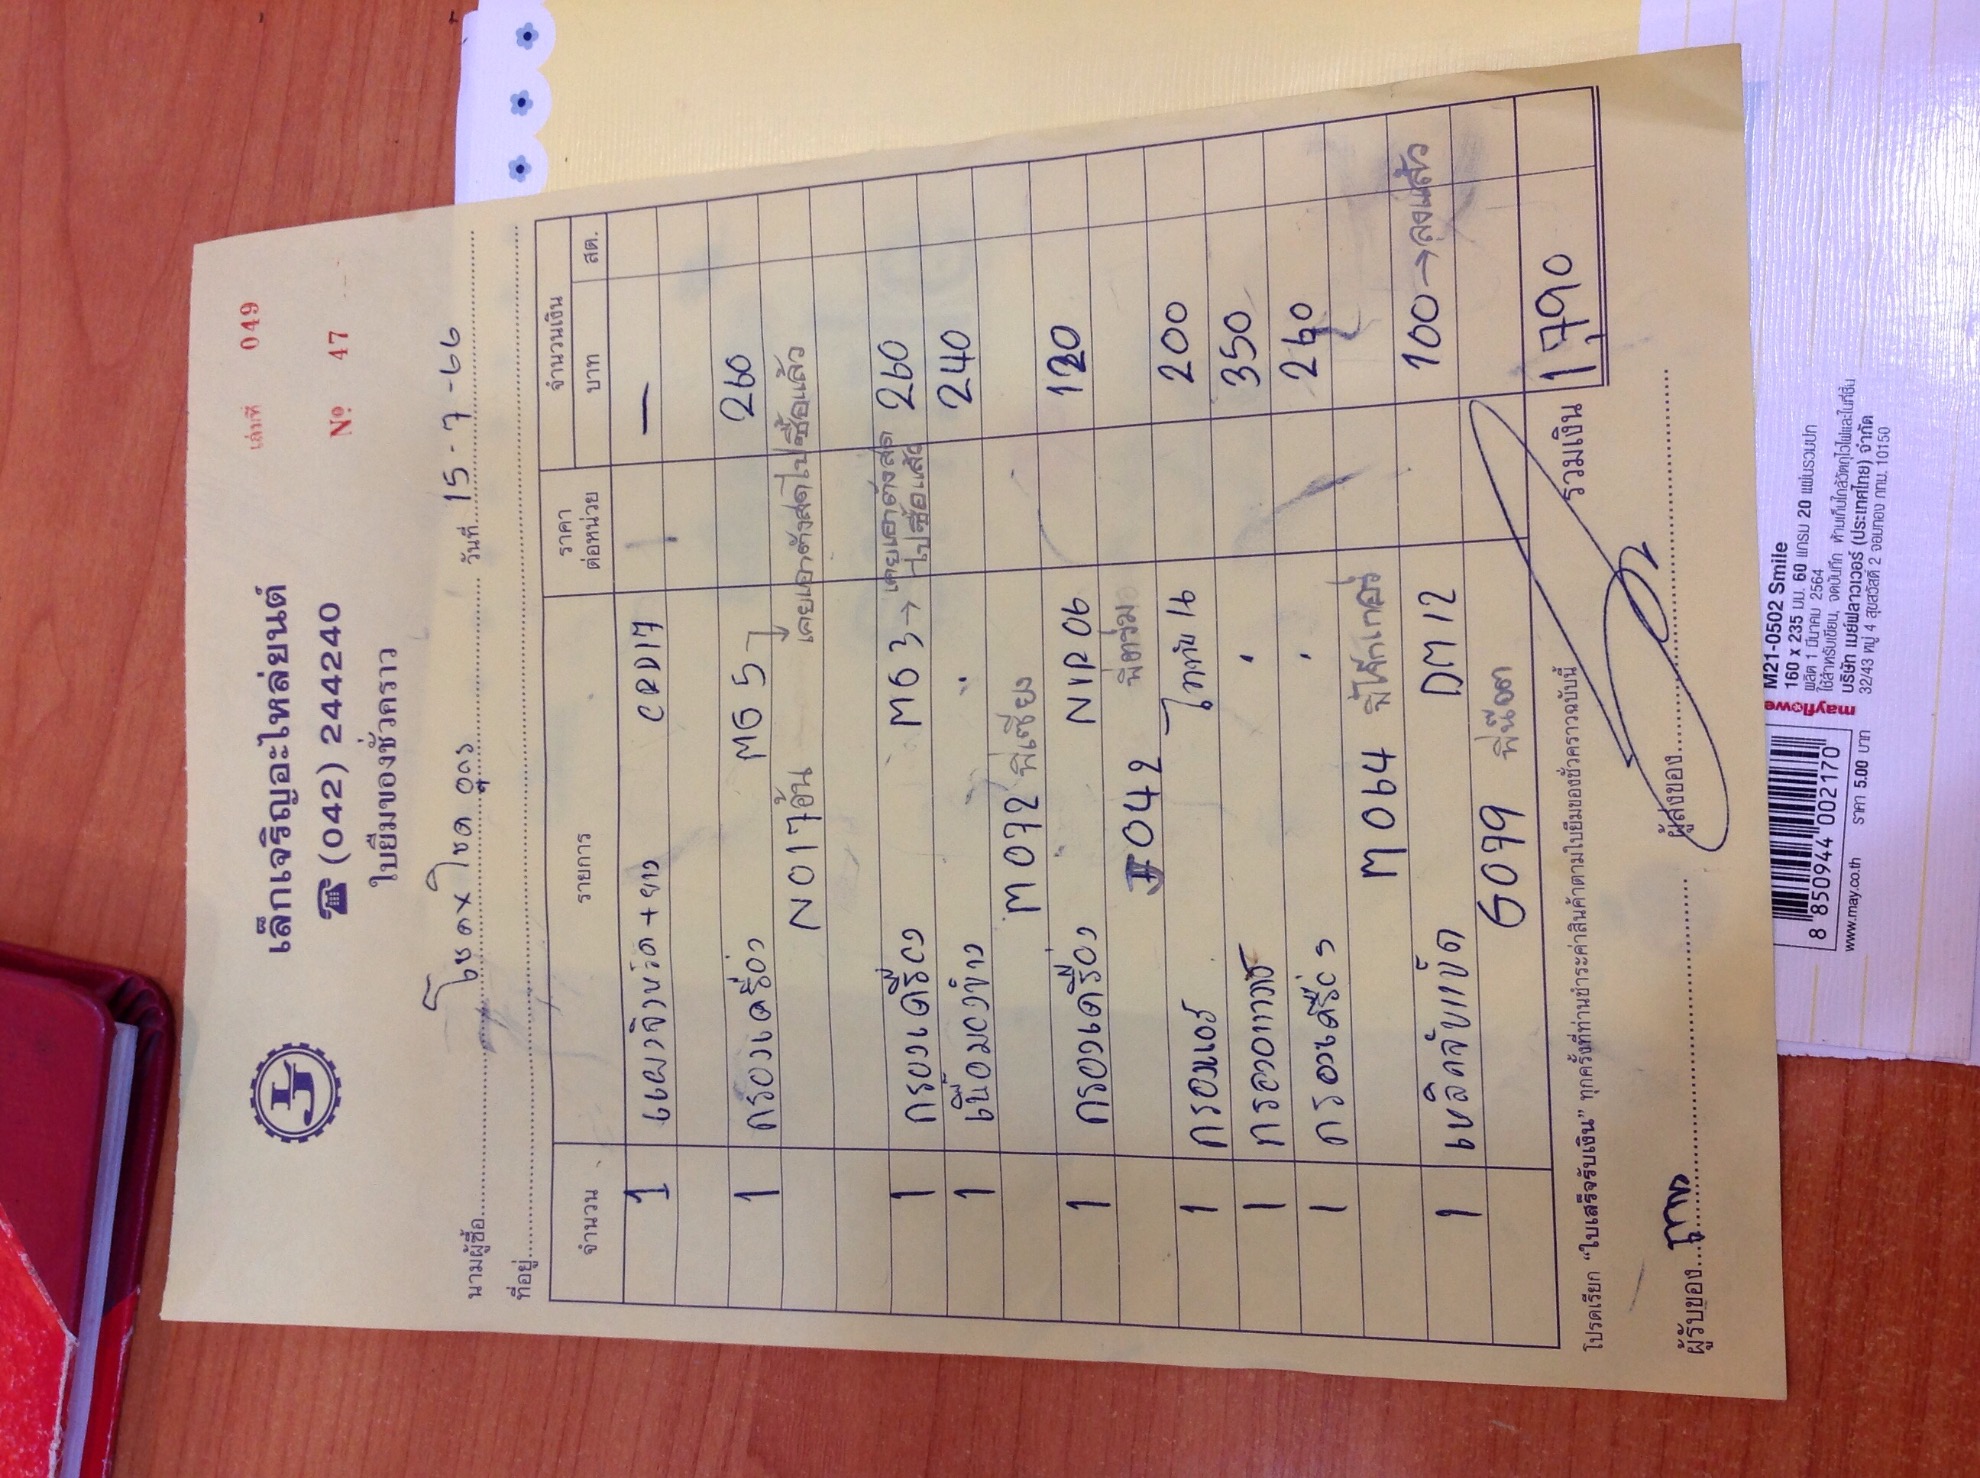 เล็กเจริญอะไหล่ยนต์
เล่มที่ 049
☎ (042) 244240
ใบยืมของชั่วคราว
№ 47
นามผู้ซื้อ โชค x โชค อุดร วันที่ 15-7-66
ที่อยู่
จำนวน รายการ ราคาต่อหน่วย จำนวนเงิน
บาท สต.
1 CRD17 —
1 กรองเครื่อง MG 5 260
N017 อั้น เคยเอาตังสดไปซื้อแล้ว
1 กรองเครื่อง MG 3 → เคยเอาตังสดไปซื้อแล้ว 260
1 240
M072 พี่เซียง
1 กรองเครื่อง NIP 06 120
#042
1 กรองแอร์ 16 200
1 350
1 กรองเครื่อง 260
M064
1 DM12 100 → ลงแล้ว
G079
รวมเงิน 1,790
โปรดเรียก “ใบเสร็จรับเงิน” ทุกครั้งที่ท่านชำระค่าสินค้าตามใบยืมของชั่วคราวฉบับนี้
ผู้รับของ ผู้ส่งของ
mayflower
M21-0502 Smile
160 x 235 มม. 60 แกรม 20 แผ่นรวมปก
ผลิต 1 มีนาคม 2564
ใช้สำหรับเขียน, จดบันทึก ห้ามเก็บใกล้วัตถุไวไฟและในที่ชื้น
บริษัท เมย์ฟลาวเวอร์ (ประเทศไทย) จำกัด
32/43 หมู่ 4 สุขสวัสดิ์ 2 จอมทอง กทม. 10150
8 850944 002170
www.may.co.th ราคา 5.00 บาท